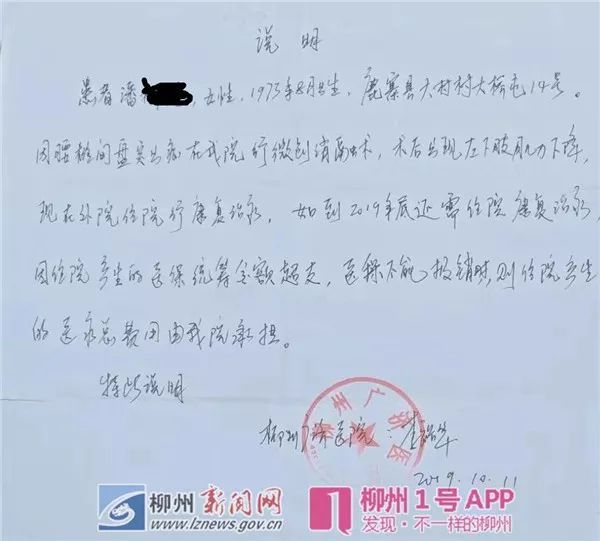 说明
患者潘 ，女性，1973年8月 生，鹿寨县大村村大榕屯14号。
因腰椎间盘突出症在我院行微创消融术，术后出现左下肢肌力下降，
现在外院住院行康复治疗，如到2019年底还需住院康复治疗，
因住院产生的医保统筹金额超支，医保不能报销时，则住院产生
的医疗总费用由我院承担。
特此说明
柳州广济医院：李
2019.10.11
柳州新闻网
www.lznews.gov.cn
柳州1号APP
发现·不一样的柳州